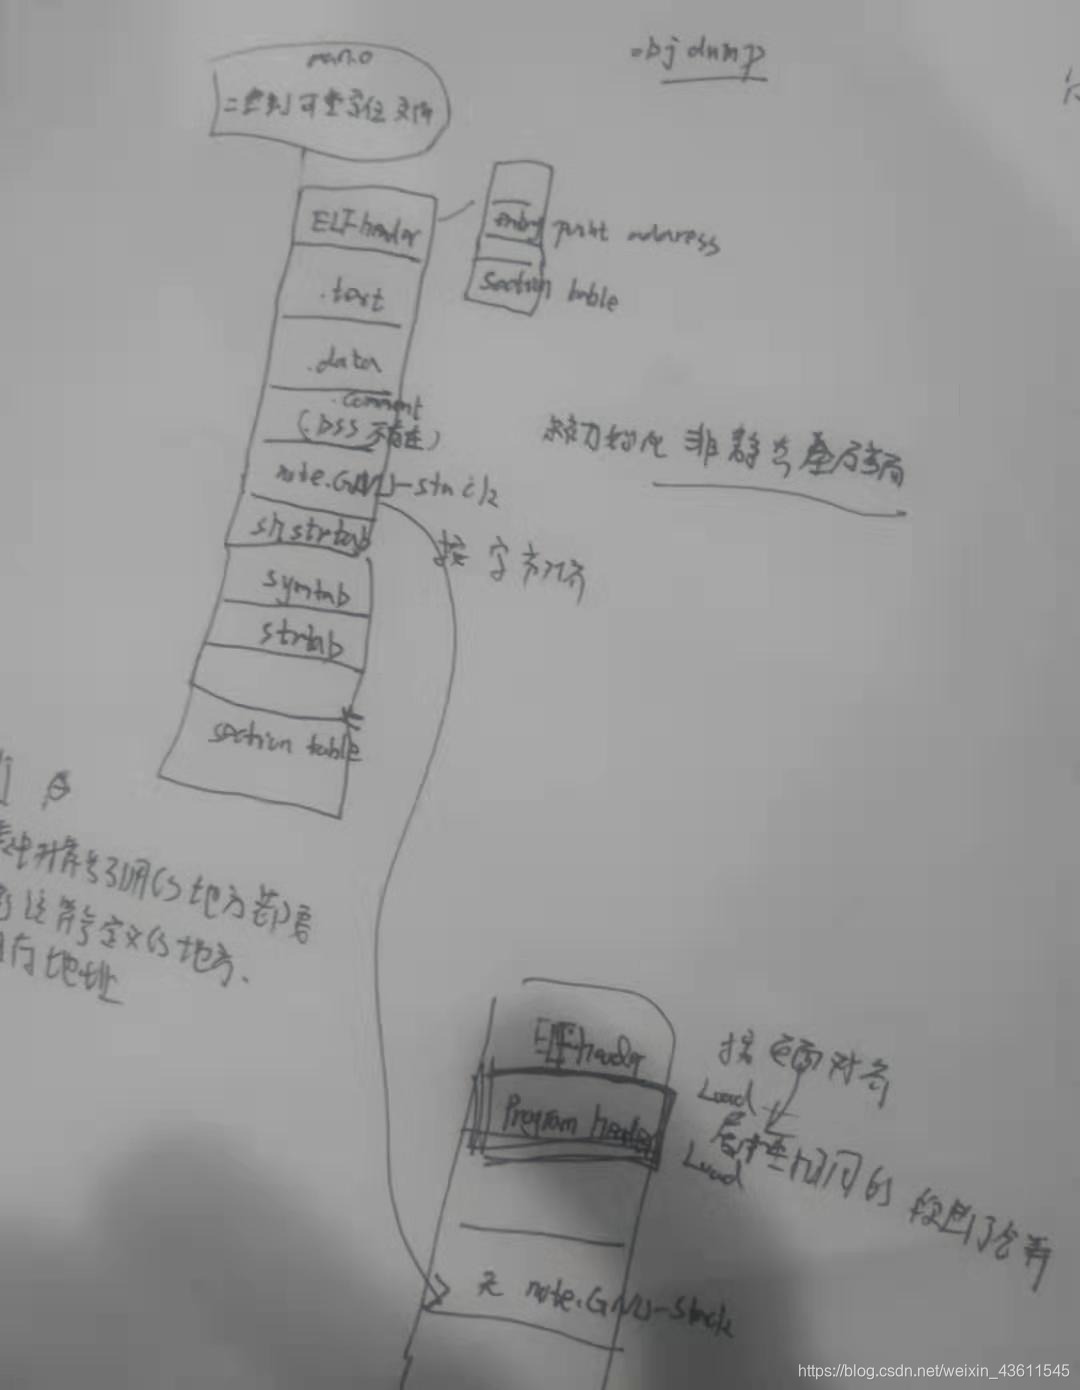 objdump
main.o
二进制可重定位文件
ELF header
entry point address
section table
.text
.data
.comment
(.bss 不存在)
未初始化 非静态全局
note.GNU-stack
shstrtab
按 字节对齐
symtab
strtab
section table
对符号引用的地方都
符号定义的地方.
地址
ELF header
按页面对齐
Load
Program header
属性相同的段进行合并
Load
无 note.GNU-stack
https://blog.csdn.net/weixin_43611545